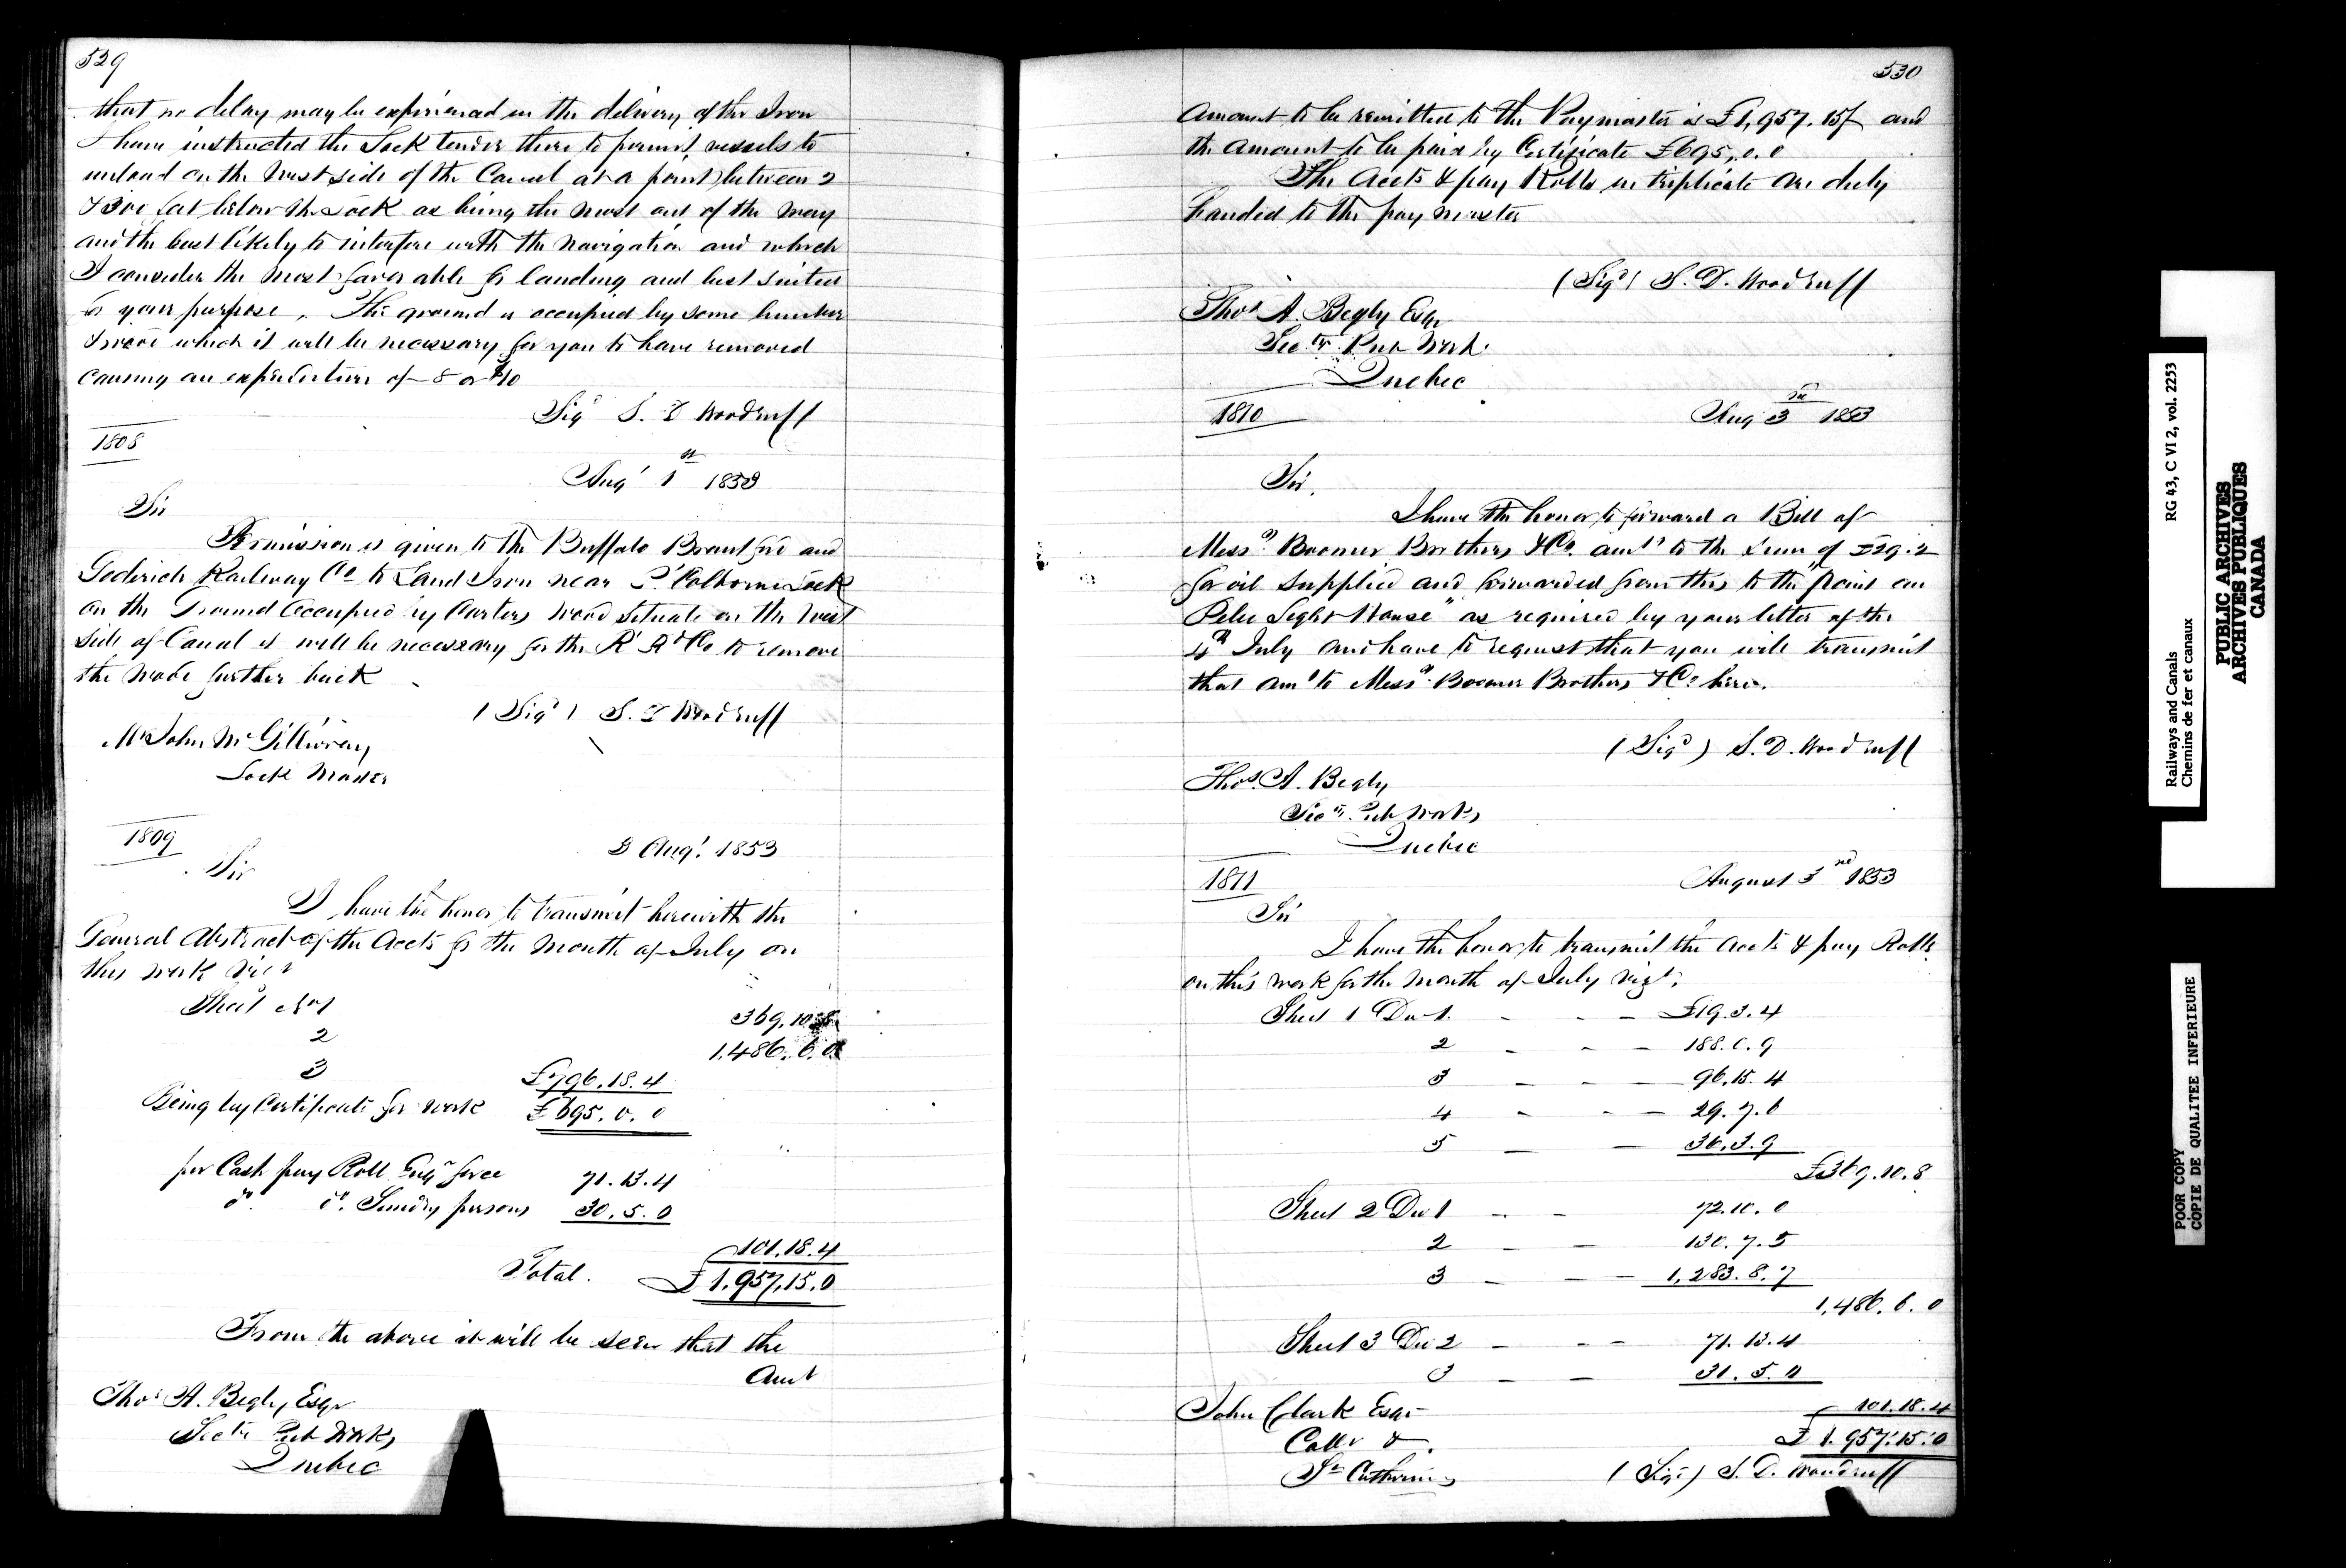 529
that no delay may be experienced in the delivery of the Iron
I have instructed the Lock tender there to permit vessels to
unload on the West side of the Canal at a point between 2
& 300 feet below the Lock as being the most out of the way
and the least likely to interfere with the Navigation and which
I consider the most favorable for landing and best suited
to your purpose. The ground is occupied by some
which it will be necessary for you to have removed
causing an expenditure of 8 or $10
Sigd S. D Woodruff
1808
Augt 1st 1853
Sir
Permission is given to the Buffalo Brantford and
Goderich Railway Co to Land Iron near Pt Colborne Lock
on the Ground Occupied by Carters Wood situate on the West
side of Canal it will be necessary for the R Rd Co to remove
the Wood further back
(Sigd) S. D Woodruff
Mr John McGillivray
Lock Master
1809
3 Augt 1853
Sir
I have the honor to transmit herewith the
General Abstract of the Accts for the Month of July on
this work vizt
Sheet No 1 369.10.8
2 1,486.6.0
3 £796.18.4
Being by Certificate for work £695.0.0
per Cash pay Roll Engr force 71.13.4
do do Sundry persons 30.5.0
101.18.4
Total. £1,957.15.0
From the above it will be seen that the
Amt
Thos A. Begly, Esqr
Secty Pub Works
Quebec
530
Amount to be remitted to the Paymaster is £1,957.15/ and
the Amount to be paid by Certificate £695.0.0
The Accts & pay Rolls in triplicate are duly
handed to the pay master
(Sigd) S. D. Woodruff
Thos A. Begly Esqr
Secty Pub Work
Quebec
1810
Aug 3rd 1853
Sir,
I have the honor to forward a Bill of
Messrs Boomer Brothers & Co. amtg to the sum of £29.2
for oil supplied and forwarded from this to the "Point au
Pelee Light House" as required by your letter of the
4th July and have to request that you will transmit
that amt to Messrs Boomer Brothers & Co here.
(Sigd) S. D. Woodruff
Thos. A. Begly
Secty. Pub Works
Quebec
1811
August 3rd 1853
Sir
I have the honor to transmit the Accts & pay Rolls
on this work for the Month of July vizt;
Sheet 1 Div 1. - - - £19.3.4
2 - - - 188.0.9
3 - - - 96.15.4
4 - - - 29.7.6
5 - - 36.3.9
£369.10.8
Sheet 2 Div 1 - - 72.10.0
2 - - 130.7.5
3 - - - 1,283.8.7
1,486.6.0
Sheet 3 Div 2 - - - 71.13.4
3 - - 31.5.0
John Clark Esqr 101.18.4
Collr &. £1.957.15.0
St Catherines (Sigd) S. D. Woodruff
Railways and Canals RG 43, C VI 2, vol. 2253
Chemins de fer et canaux
PUBLIC ARCHIVES
ARCHIVES PUBLIQUES
CANADA
POOR COPY
COPIE DE QUALITEE INFERIEURE